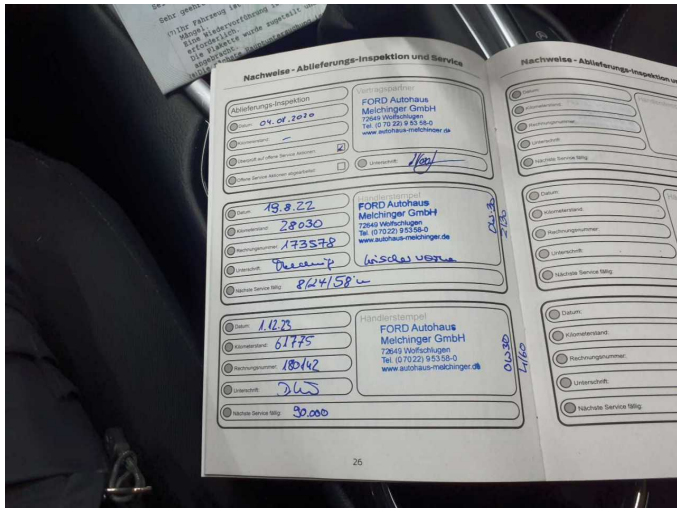 Sehr geehr
(1) Ihr Fahrzeug ist
Mängel.
Eine Wiedervorführung i
erforderlich.
Die Plakette wurde zugeteilt un
angebracht.
Hauptuntersuchung
Nachweise - Ablieferungs-Inspektion und Service
Ablieferungs-Inspektion
Datum: 04.01.2020
Kilometerstand: –
Überprüft auf offene Service Aktionen:
Offene Service Aktionen abgearbeitet:
Vertragspartner
FORD Autohaus
Melchinger GmbH
72649 Wolfschlugen
Tel. (0 70 22) 9 53 58-0
www.autohaus-melchinger.de
Unterschrift:
Datum: 19.8.22
Kilometerstand: 28030
Rechnungsnummer: 173578
Unterschrift:
Nächste Service fällig: 8/24/58
Händlerstempel
FORD Autohaus
Melchinger GmbH
72649 Wolfschlugen
Tel. (07022) 95358-0
www.autohaus-melchinger.de
0W30
Datum: 1.12.23
Kilometerstand: 61775
Rechnungsnummer: 180142
Unterschrift:
Nächste Service fällig: 90.000
Händlerstempel
FORD Autohaus
Melchinger GmbH
72649 Wolfschlugen
Tel. (07022) 95358-0
www.autohaus-melchinger.de
0W30
4160
26
Nachweise - Ablieferungs-Inspektion un
Datum:
Kilometerstand:
Rechnungsnummer:
Unterschrift:
Nächste Service fällig:
Datum:
Kilometerstand:
Rechnungsnummer:
Unterschrift:
Nächste Service fällig:
Datum:
Kilometerstand:
Rechnungsnummer:
Unterschrift:
Nächste Service fällig: